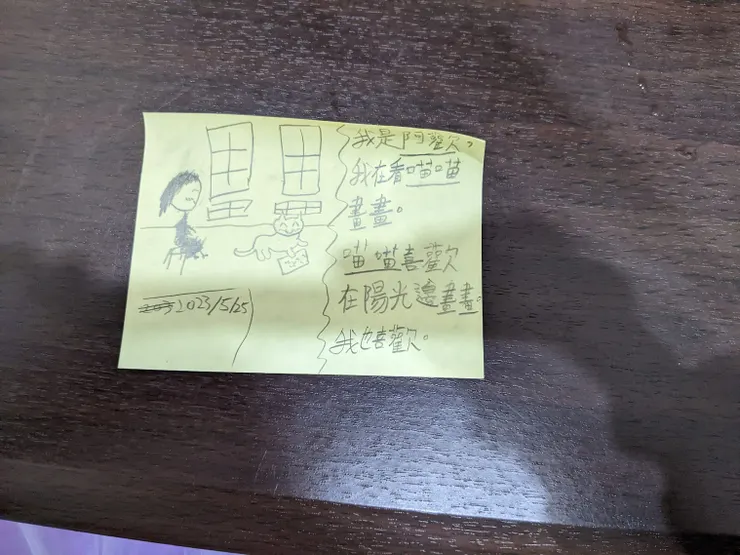 我是阿歡。
我在看喵喵
畫畫。
喵喵喜歡
在陽光邊畫畫。
我也喜歡。
2023/5/25